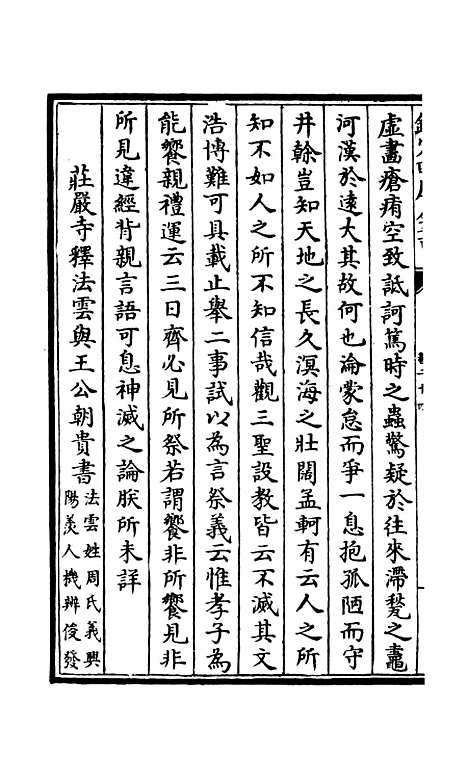 虛畫瘡痏空致詆訶篤時之蟲驚疑於往來滯甃之鼃
河漢於遠大其故何也淪蒙怠而爭一息抱孤陋而守
井榦豈知天地之長久溟海之壯闊孟軻有云人之所
知不如人之所不知信哉觀三聖設教皆云不滅其文
浩博難可具載止舉二事試以為言祭義云惟孝子為
能饗親禮運云三日齊必見所祭若謂饗非所饗見非
所見違經背親言語可息神滅之論朕所未詳
莊嚴寺釋法雲與王公朝貴書法雲姓周氏義興
陽羨人機辨俊發